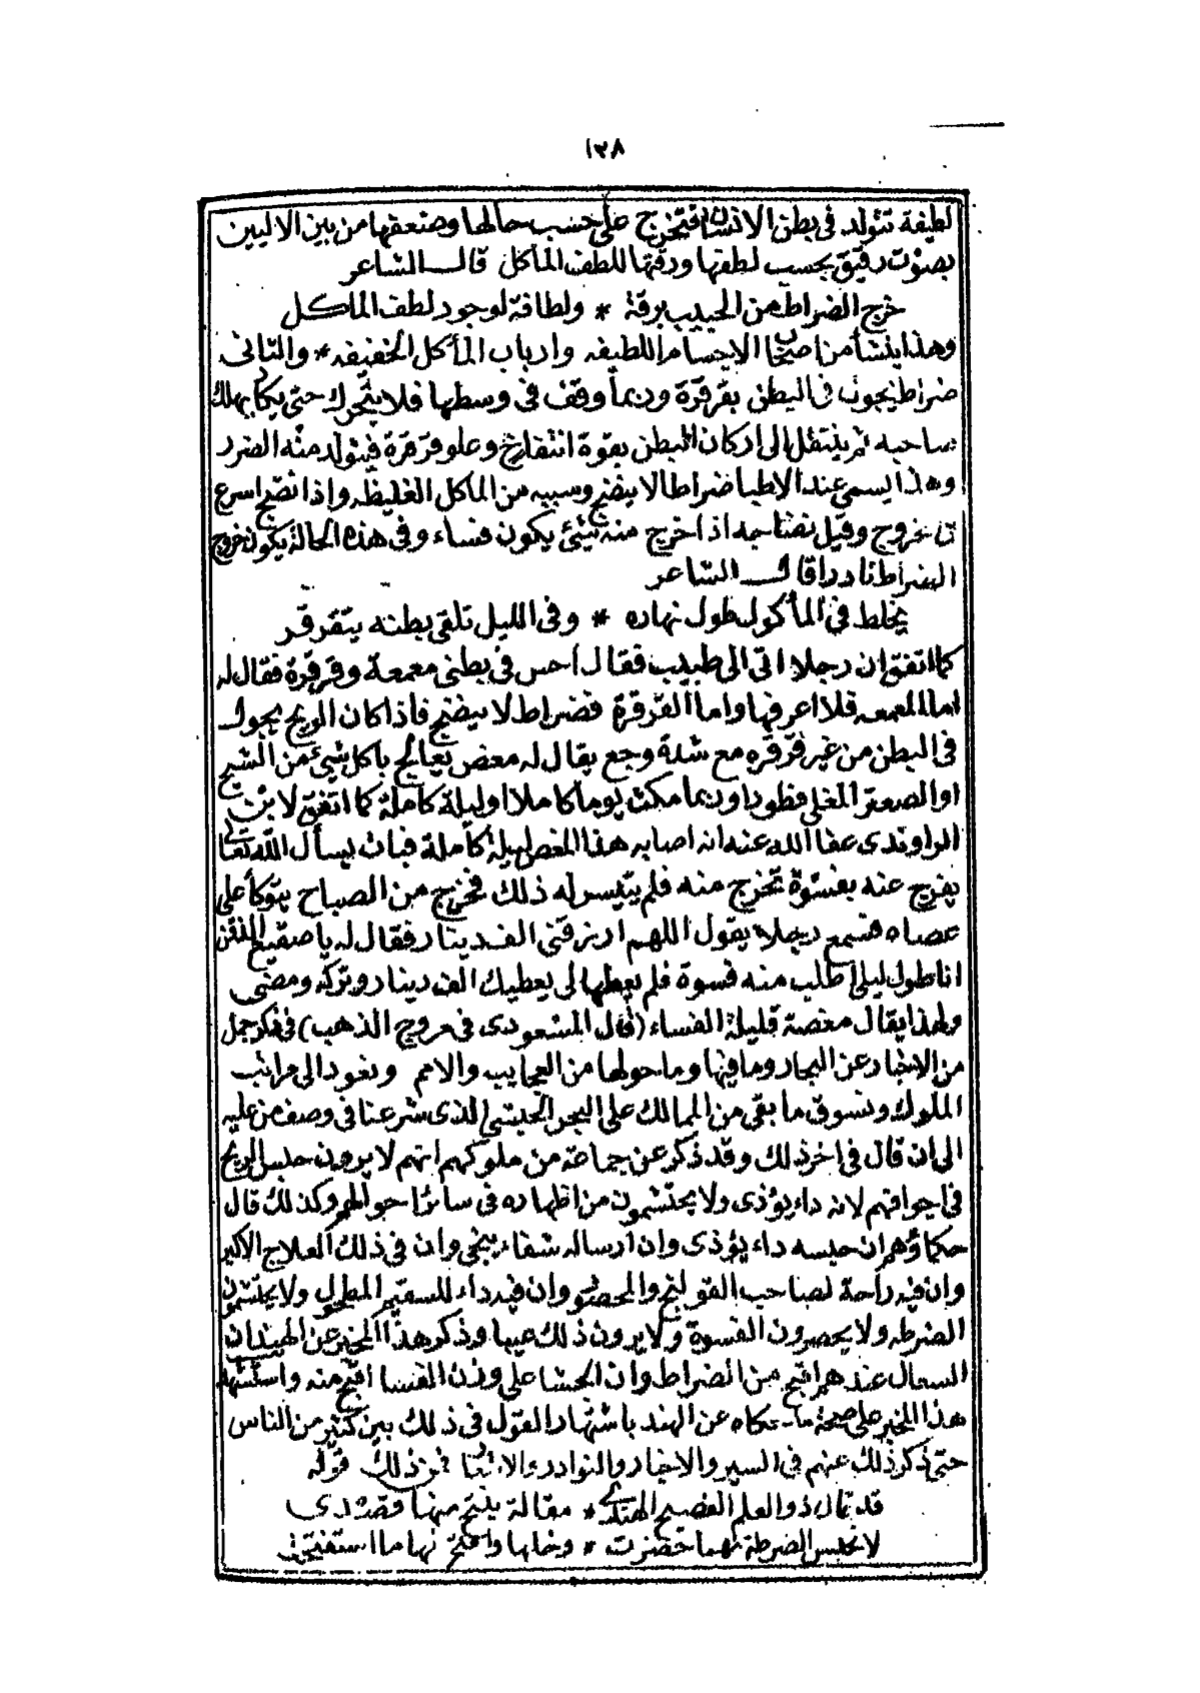 ١٣٨
لطيفة تتولد فى بطن الانسان فتخرج على حسب حالها وضعفها من بين الاليين
بصوت رقيق بحسب لطفها ورقتها للطف المأكل قال الشاعر
خرج الضراط من الحبيب برقة * ولطافة لوجود لطف الماكل
وهذا ينشأ من اصحاب الاجسام اللطيفه وارباب المأكل الخفيفه * والثانى
ضراط يجول فى البطن بقرقرة وربما وقف فى وسطها فلا يتحرك حتى يكاد يهلك
صاحبه ثم ينتقل الى اركان البطن بقوة انتفاخ وعلو قرقرة فيتولد منه الضرر
وهذا يسمى عند الاطبا ضراطا لا ينضج وسببه من الماكل الغليظه واذا نضج اسرع
فى خروج وقيل نضاجه اذا خرج منه شيئ يكون فساء وفى هذه الحالة يكون خروج
الضراط نادرا قال الشاعر
يخلط فى المأكول طول نهاره * وفى الليل تلقى بطنه يتقرقر
كما اتفق ان رجلا اتى الى طبيب فقال احس فى بطنى معمعة وقرقرة فقال له
اما المعمعه فلا اعرفها واما القرقرة فضراط لا ينضج فاذا كان الريح يجول
فى البطن من غير قرقره مع شدة وجع يقال له مغص يعالج باكل شيئ من الشيح
او الصعتر المغلى فطورا وربما مكث يوما كاملا او ليلة كاملة كما اتفق لابن
الراوندى عفا الله عنه انه اصابه هذا المغص ليلة كاملة فبات يسأل الله تعالى
يفرج عنه بفسوة تخرج منه فلم يتيسر له ذلك فخرج من الصباح يتوكأ على
عصاه فسمع رجلا يقول اللهم ارزقنى الف دينار فقال له يا صقيع الذقن
انا طول ليلى اطلب منه فسوة فلم يعطها لى يعطيك الف دينار وتركه ومضى
ولهذا يقال مغصة قليلة الفساء (قال المسعودى فى مروج الذهب) فى ذكر جمل
من الاخبار عن البحار وما فيها وما حولها من العجايب والامم ونعود الى مراتب
الملوك ونسوق ما بقى من الممالك على البحر الحبشى الذى شرعنا فى وصف من عليه
الى ان قال فى اخر ذلك وقد ذكر عن جماعة من ملوكهم انهم لا يرون حبس الريح
فى اجوافهم لانه داء يؤذى ولا يحتشمون من اظهاره فى سائر احوالهم وكذلك قال
حكماؤهم ان حبسه داء يؤذى وان ارساله شفاء ينجى وان فى ذلك العلاج الاكبر
وان فيه راحة لصاحب القولنج والمحصور وان فيه داء للسقيم المطحول ولا يحتشمون
الضرطه ولا يحصرون الفسوة ولا يرون ذلك عيبا وذكر هذا المخبر عن الهند ان
السعال عندهم اقبح من الضراط وان الجشا على وزن الفسا اقبح منه واستشهد
هذا المخبر على صحة ما حكاه عن الهند باشتهار القول فى ذلك بين كثير من الناس
حتى ذكر ذلك عنهم فى السير والاخبار والنوادر والاشعار فمن ذلك قوله
قد قال ذو العلم الفصيح الهندى * مقالة ينتج منها قصدى
لا تحبس الضرطة مهما حضرت * وخلها وافتح لها ما استفتحت